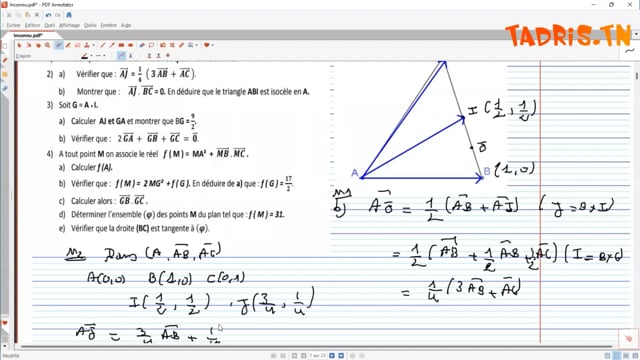 Inconnu.pdf* - PDF Annotator
Fichier Edition
TADRIS.TN
2) a) Vérifier que : AJ = 1/4 ( 3 AB + AC ).
b) Montrer que : AJ . BC = 0. En déduire que le triangle ABI est isocèle en A.
3) Soit G = A * I.
a) Calculer AI et GA et montrer que BG = 9/2.
b) Vérifier que : 2 GA + GB + GC = 0.
4) A tout point M on associe le réel f ( M ) = MA² + MB . MC.
a) Calculer f(A).
b) Vérifier que : f ( M ) = 2 MG² + f ( G ). En déduire de a) que : f ( G ) = 17/2
c) Calculer alors : GB . GC.
d) Déterminer l'ensemble (φ) des points M du plan tel que : f ( M ) = 31.
e) Vérifier que la droite (BC) est tangente à (φ).
I (1/2, 1/2)
J
A
B (1,0)
M1
b) AJ = 1/2 (AB + AI) (J = B * I)
= 1/2 (AB + 1/2 AB + 1/2 AC) (I = B * C)
= 1/4 (3 AB + AC)
M2 Dans (A, AB, AC)
A(0,0) B(1,0) C(0,1)
I(1/2, 1/2), J(3/4, 1/4)
AJ = 3/4 AB +